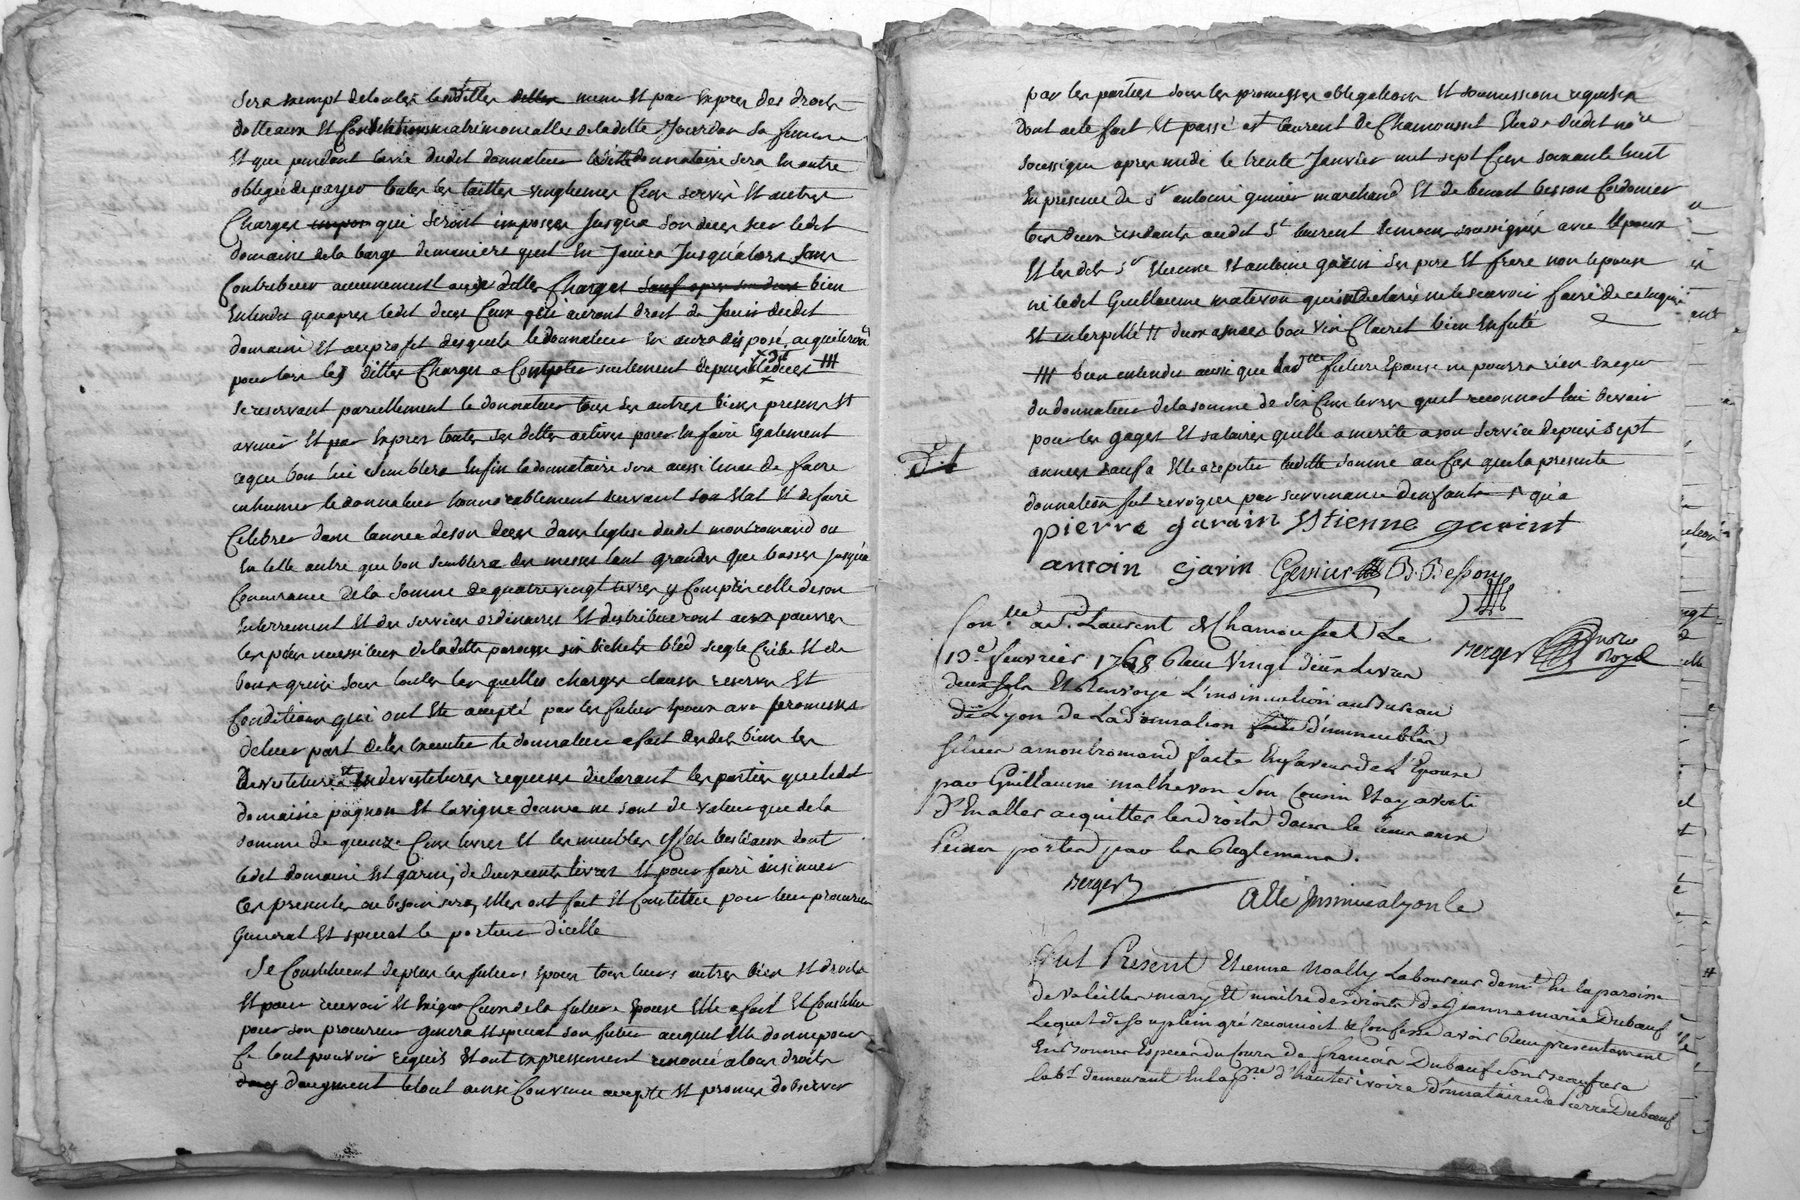 sera exempt de toutes lesdittes dettes meme et par expres des droits
dotteaux et Conditions matrimonialles de la ditte Jourdan sa femme
et que pendant la vie dudit donnateur ledit donnataire sera en outre
obligé de payer toutes les tailles vingtiemes Cens servis et autres
Charges impos qui seront imposees Jusqua son deces sur ledit
domaine de la barge de maniere quil en Jouira Jusqu'alors sans
Contribuer aucunement auxdittes Charges sauf apres son deces bien
Entendu quapres ledit deces Ceux qui auront droit de Jouir dudit
domaine et au profit desquels le donnateur en aura disposé, acquitteront
pour lors les dittes Charges a Compter seulement depuis ledit deces #
se reservant pareillement le donnateur tous ses autres biens presens et
avenir et par expres toutes ses dettes actives pour en faire Egalement
ceque bon lui semblera Enfin le donnataire sera aussi tenu de faire
inhumer le donnateur honnorablement suivant son Etat et de faire
Celebrer dans lannee de son deces dans leglise dudit montromand ou
en telle autre que bon semblera des messes tant grandes que basses jusqua
Concurrance de la somme de quatre vingt livres y Compris celle de son
Enterrement et des services ordinaires et distribueront aux pauvres
les plus necessiteux de la ditte paroisse six bichets bled seigle Crible et de
bon grain sous toutes les quelles charges clauses reserves et
Conditions qui ont ete accepté par les futurs Epoux avec promesses
de leur part de les executer le donnateur a fait desdits biens les
Devestitures et investitures requises declarant les parties que ledit
domaine pagnon et la vigne donnée ne sont de valeur que de la
somme de quinze Cens livres et les meubles effets bestiaux dont
ledit domaine est garni, de deux cents livres et pour faire insinuer
Ces presentes au besoin sera, elles ont fait et Constitué pour leur procureur
General et special le porteur dicelle
Se Constituent de plus les futurs Epoux tous leurs autres bien et droits
et pour recevoir et Exiger Ceux de la future Epouse Elle a fait et Constitué
pour son procureur general et special son futur auquel elle donne pour
Ce tout pouvoir requis et ont expressement renoncé a tous droits
daug daugment le tout ainsi Convenu accepté et promis dobserver
par les parties sous les promesses obligations et soumissions requises
dont acte fait et passé a st laurent de Chamousset Etude dudit nore
soussigné apres midi le trente Janvier mil sept Cens soixante huit
En presence de Sr antoine genier marchand et de benoit besson Cordonier
tous deux residants audit St laurent temoins soussignés avec lepoux
et lesdits Sr Etienne et antoine garin ses pere et frere non lepouse
ni ledit Guillaume matevon qui ont declaré ne le scavoir faire de ce enquis
et interpellé # dun asnées bon vin Clairet bien Enfuté
# bien entendu aussi que ladtte future Epouse ne pourra rien exiger
du donnateur de la somme de six Cens livres quil reconnoit lui devoir
pour les gages et salaires quelle a merité a son service depuis sept
années sauf a Elle a repeter laditte somme au Cas que la presente
donnation fut revoquée par survenance denfants
pierre garin Etienne garint
antoin garin Genier B. Besson
Berger nore Royal
Conlé a St. Laurent de Chamousset Le
13e fevrier 1768 Reçu Vingt d'eux Livres
deux sols Et Renvoyé L'insinuation au Bureau
de Lyon de La donnation faite d'immeubles
situés a montromand faite En faveur de L'Epouse
par Guillaume mathevon son Cousin Et ay averti
d'En aller acquitter les droits dans le tems aux
Peines portées par les Reglemens.
Berger
a Eté Insinué a lyon le
Fut Présent Etienne Noally Laboureur demt En la paroisse
de Valeilles mary et maitre des droits de Jeanne marie Dubœuf
Lequel de son plein gré reconnoit & Confesse avoir Reçu presentement
En bonnes Especes du Cours de francois Dubœuf son beaufrere
labr demeurant En la pse d'hauterivoire donnataire de Pierre Dubœuf